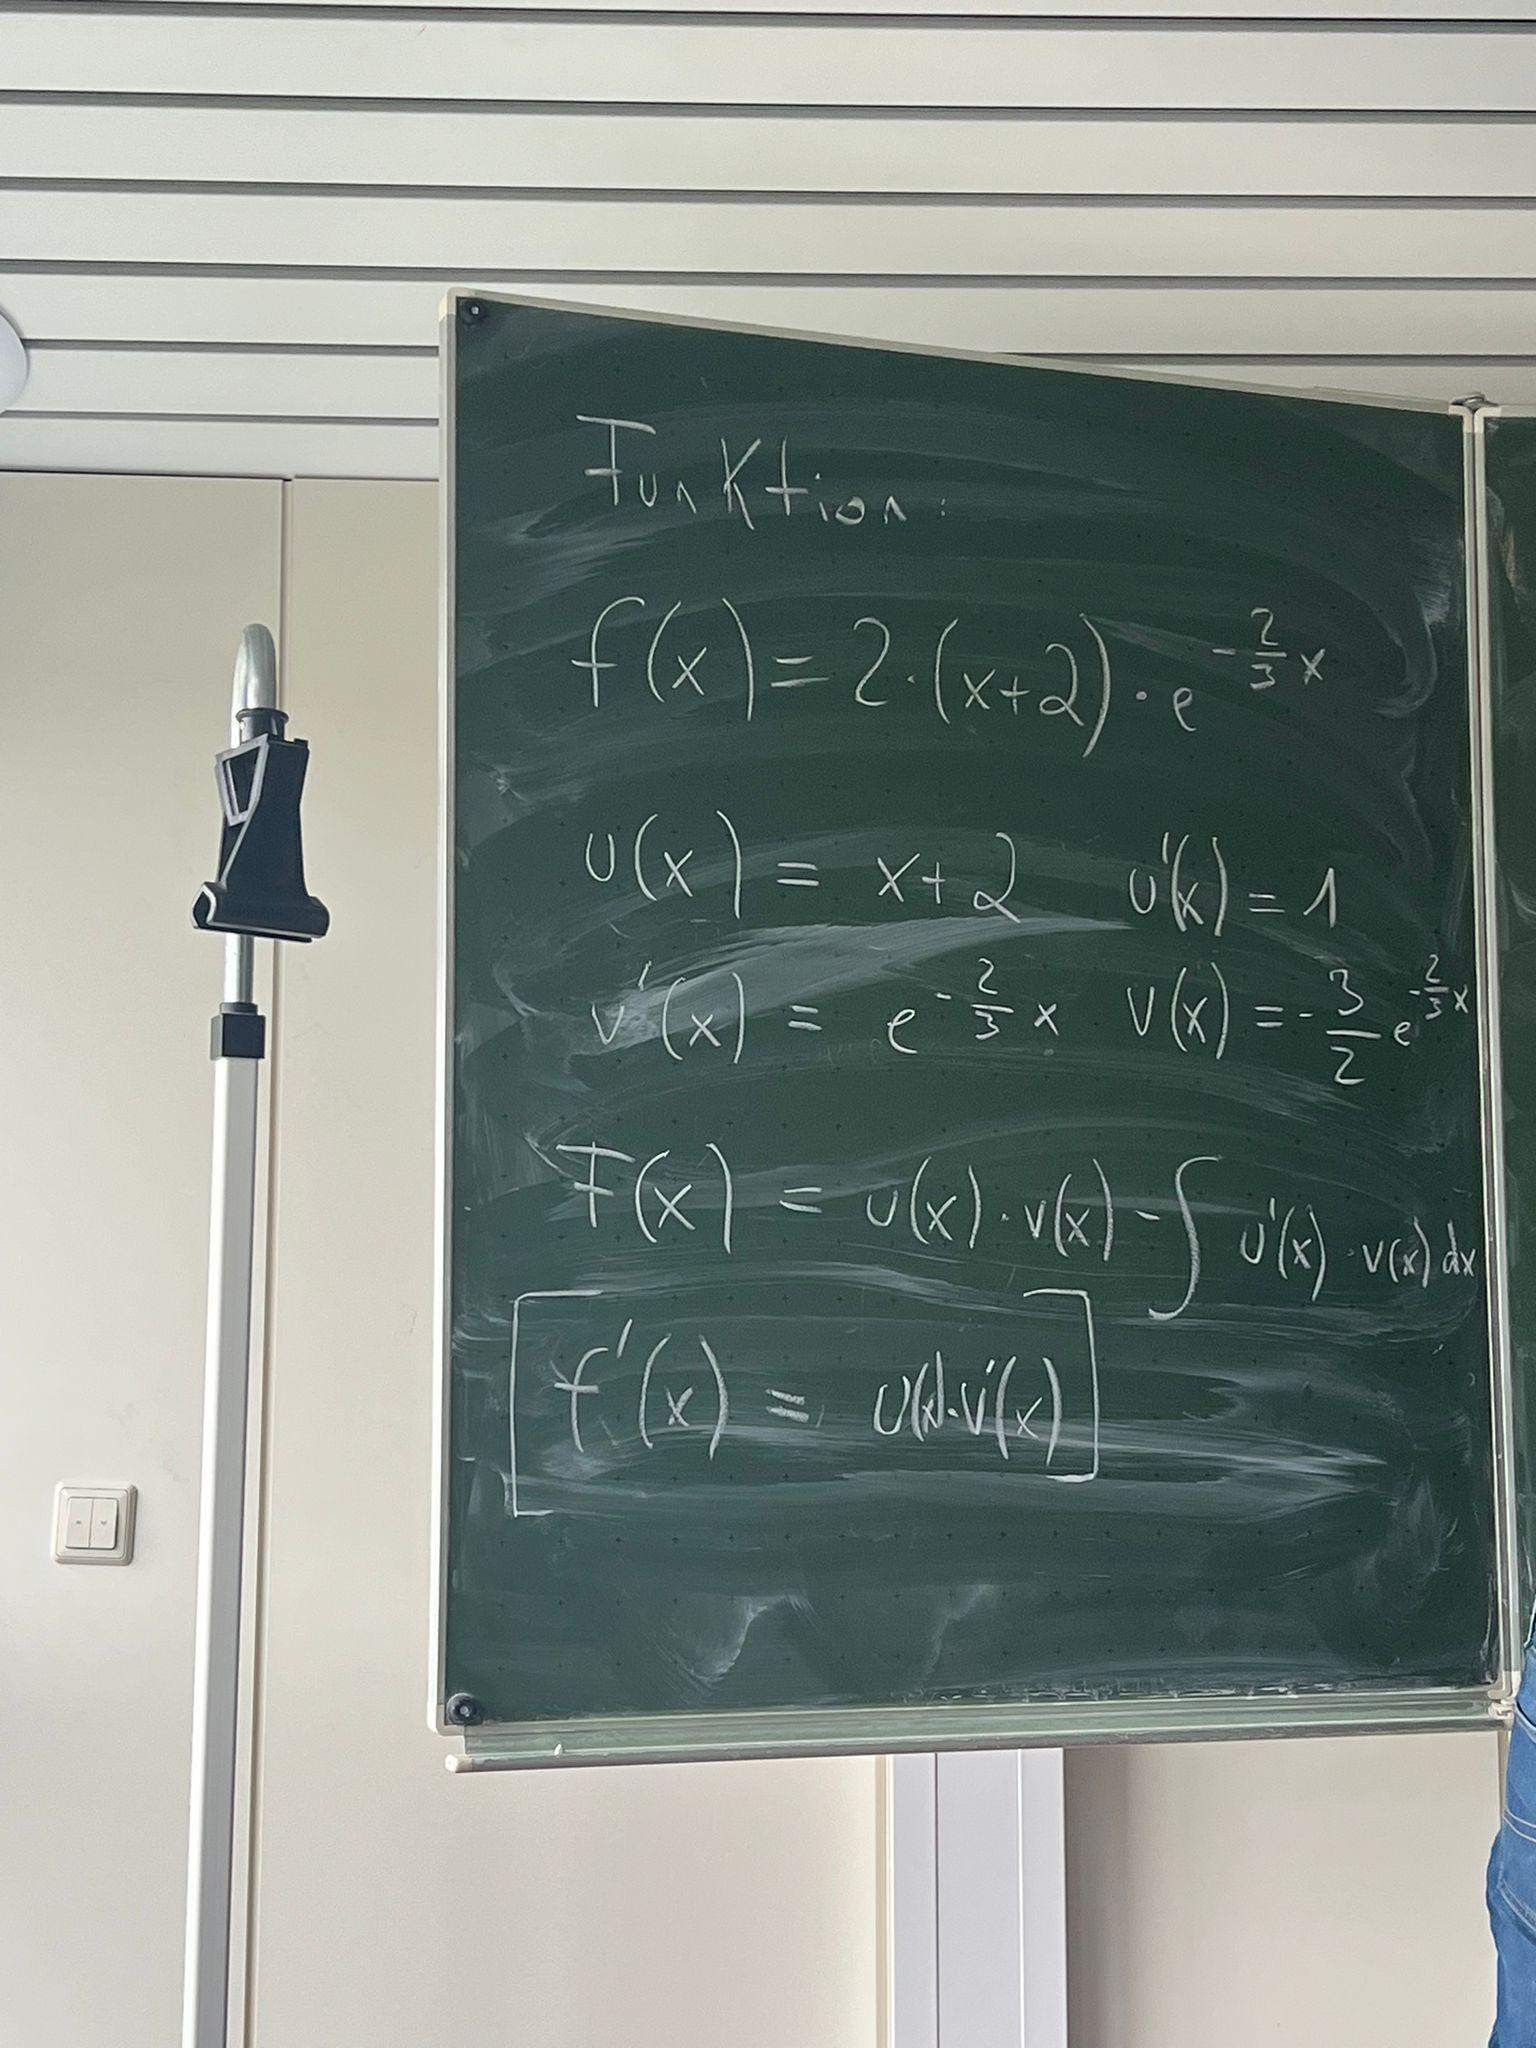 Funktion:
f(x) = 2·(x+2)·e^{-2/3 x}
u(x) = x+2 u'(x) = 1
v'(x) = e^{-2/3 x} v(x) = -3/2 e^{-2/3 x}
F(x) = u(x)·v(x) - ∫ u'(x)·v(x) dx
[f'(x) = u(x)·v'(x)]